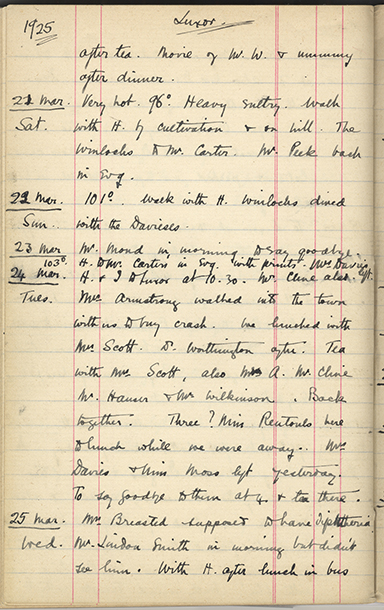 1925 Luxor
after tea. Movie of Mr. W. & mummy
after dinner.
21 Mar. Very hot. 96° Heavy sultry. Walk
Sat. with H. by cultivation & on hill. The
Winlocks to Mr. Carter. Mr. Peck back
in Evg.
22 Mar. 101°. Walk with H. Winlocks dined
Sun. with the Davieses.
23 Mar Mr. Mond in morning to say goodbye.
103°. H. to Mr. Carter in Evg. with prints. Mrs Davies left.
24 Mar. H. & I to Luxor at 10.30. Mr. Cline also.
Tues. Miss Armstrong walked into the town
with us to buy crash. We lunched with
Mrs Scott. Dr. Worthington after. Tea
with Mrs Scott, also Miss A. Mr. Cline
Mr. Hauser & Mr Wilkinson. Back
together. Three? Miss Rentouls here
to lunch while we were away. Mrs
Davies & Miss Moss left yesterday.
To say goodbye to them at 4. & tea there.
25 Mar. Mrs Breasted supposed to have Diphtheria
Wed. Mr. Lindon Smith in morning but didn't
see him. With H. after lunch in bus